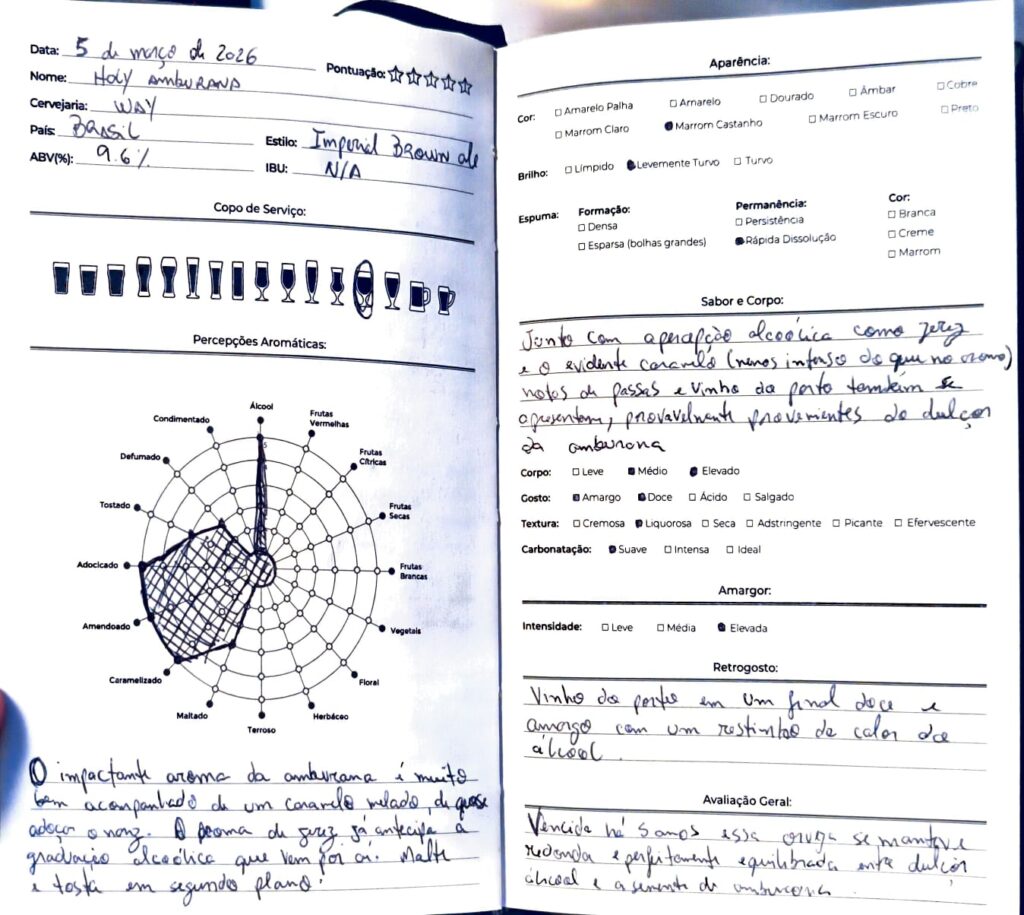 Data: 5 de março de 2026
Pontuação:
Nome: Holy Amburana
Cervejaria: Way
País: Brasil
Estilo: Imperial Brown ale
ABV(%): 9.6%
IBU: N/A
Copo de Serviço:
Percepções Aromáticas:
Álcool
Frutas Vermelhas
Frutas Cítricas
Frutas Secas
Frutas Brancas
Vegetais
Floral
Herbáceo
Terroso
Maltado
Caramelizado
Amendoado
Adocicado
Tostado
Defumado
Condimentado
5
O impactante aroma da amburana é muito
bem acompanhado de um caramelo melado, de quase
adoçar o nariz. O aroma de jerez já antecipa a
graduação alcoólica que vem por aí. Malte
e tosta em segundo plano.
Aparência:
Cor: Amarelo Palha Amarelo Dourado Âmbar Cobre
Marrom Claro Marrom Castanho Marrom Escuro Preto
Brilho: Límpido Levemente Turvo Turvo
Espuma: Formação: Permanência: Cor:
Densa Persistência Branca
Esparsa (bolhas grandes) Rápida Dissolução Creme
Marrom
Sabor e Corpo:
Junto com a percepção alcoólica como jerez
e o evidente caramelo (menos intenso do que no aroma)
notas de passas e vinho do porto também se
apresentam, provavelmente provenientes do dulçor
da amburana
Corpo: Leve Médio Elevado
Gosto: Amargo Doce Ácido Salgado
Textura: Cremosa Liquorosa Seca Adstringente Picante Efervescente
Carbonatação: Suave Intensa Ideal
Amargor:
Intensidade: Leve Média Elevada
Retrogosto:
Vinho do porto em um final doce e
amargo com um restinho de calor do
álcool.
Avaliação Geral:
Vencida há 5 anos essa se manteve
redonda e perfeitamente equilibrada entre dulçor
álcool e a semente de amburana.